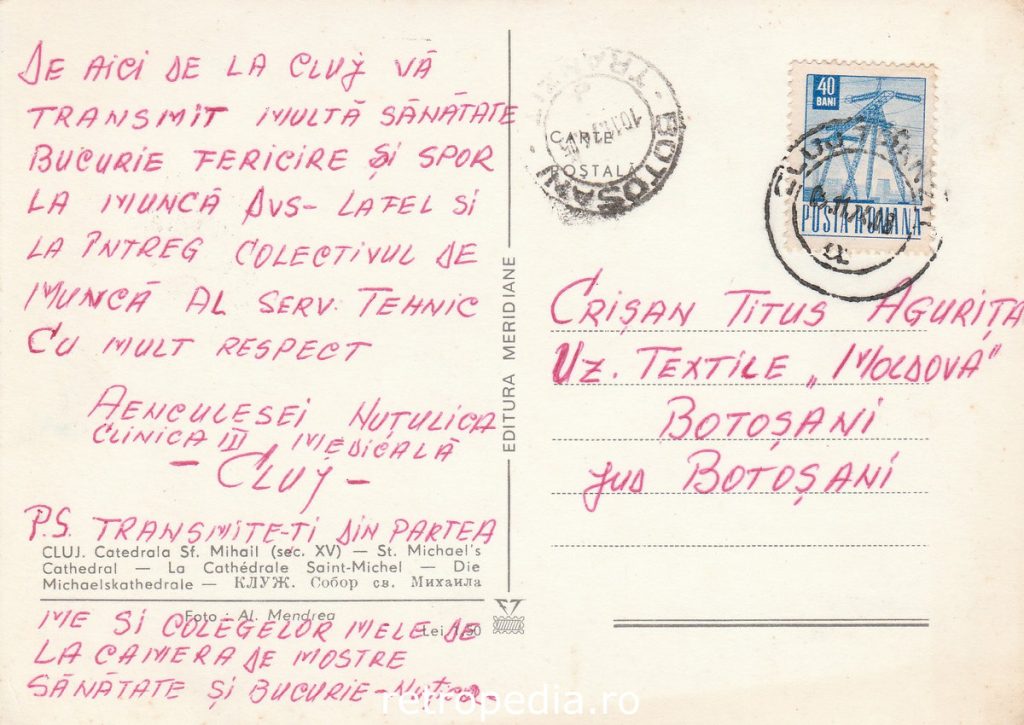 DE AICI DE LA CLUJ VĂ
TRANSMIT MULTĂ SĂNĂTATE
BUCURIE FERICIRE ȘI SPOR
LA MUNCĂ DVS- LAFEL SI
LA ÎNTREG COLECTIVUL DE
MUNCĂ AL SERV. TEHNIC
CU MULT RESPECT
AENCULESEI NUȚULICA
CLINICA III MEDICALĂ
- CLUJ -
P.S. TRANSMITE-TI DIN PARTEA
CLUJ. Catedrala Sf. Mihail (sec. XV) — St. Michael's
Cathedral — La Cathédrale Saint-Michel — Die
Michaelskathedrale — КЛУЖ. Собор св. Михаила
Foto : Al. Mendrea
Lei 1,50
ME SI COLEGELOR MELE DE
LA CAMERA DE MOSTRE
SĂNĂTATE ȘI BUCURIE-Nuțica-
EDITURA MERIDIANE
CARTE
POȘTALĂ
BOTOȘANI
40
BANI
POSTA ROMANA
CRIȘAN TITUS AGURIȚA
UZ. TEXTILE „MOLDOVĂ"
BOTOȘANI
jud BOTOȘANI
retropedia.ro